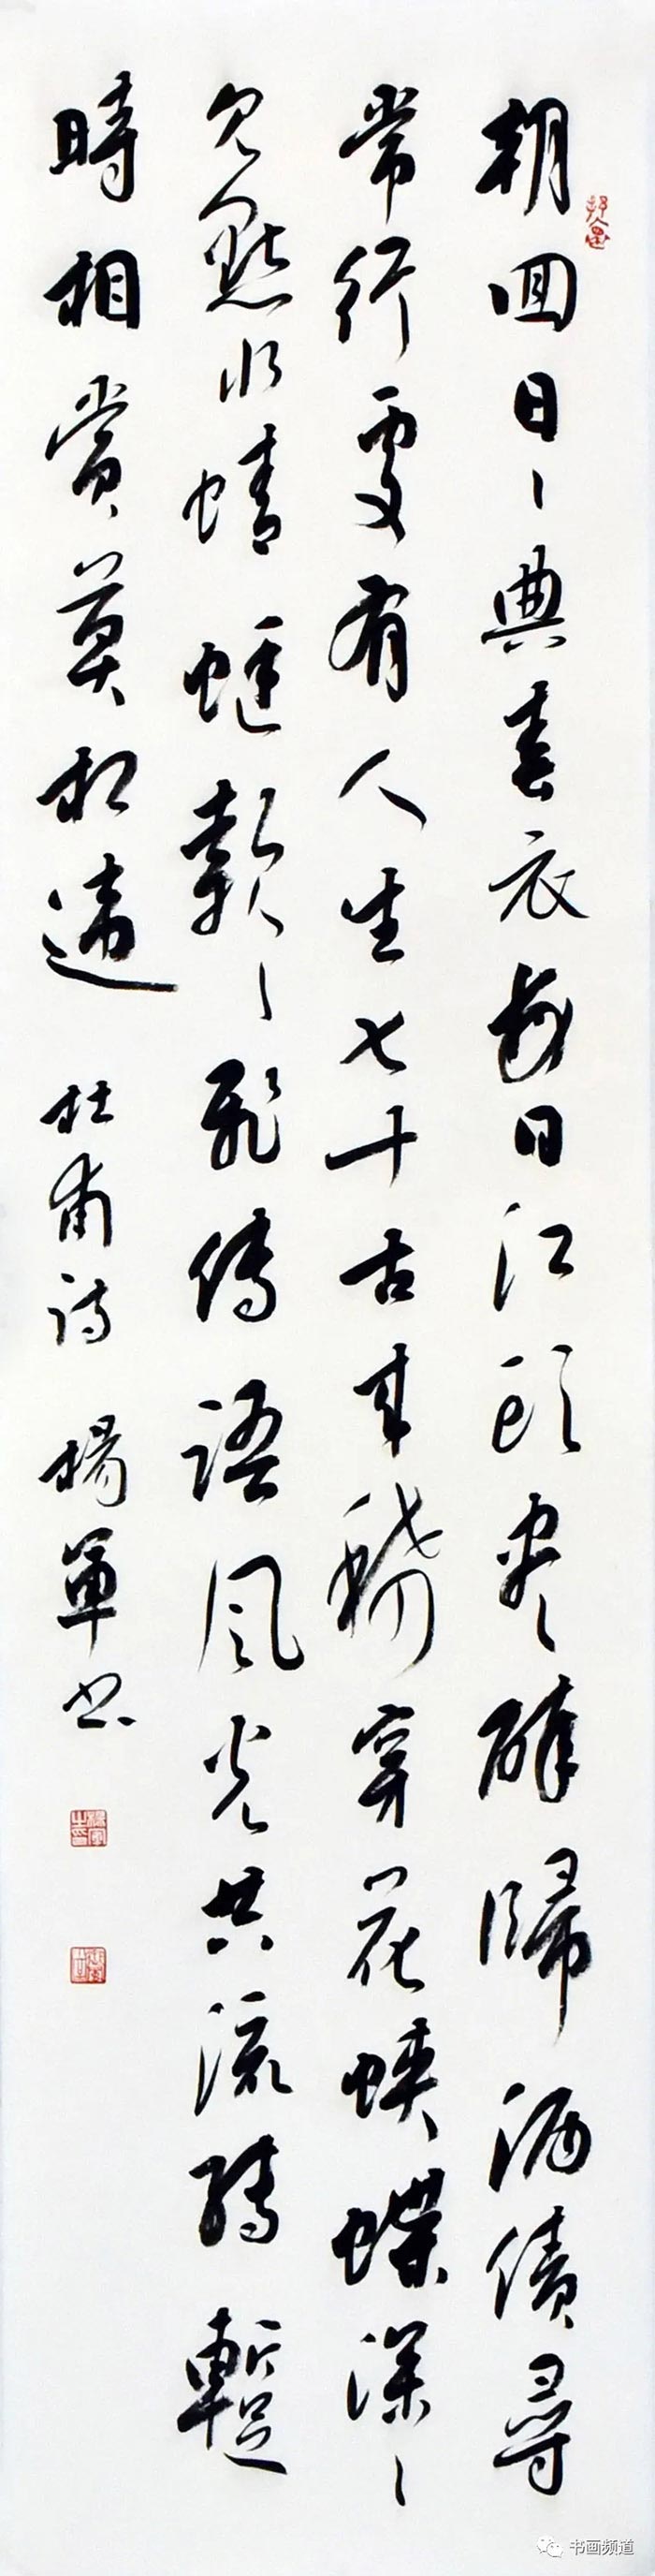 朝回日々典春衣每日江頭盡醉歸酒債尋
常行處有人生七十古來稀穿花蛺蝶深々
見點水蜻蜓款々飛傳語風光共流轉暫
時相賞莫相違 杜甫詩 楊軍书
楊軍之印
书画频道